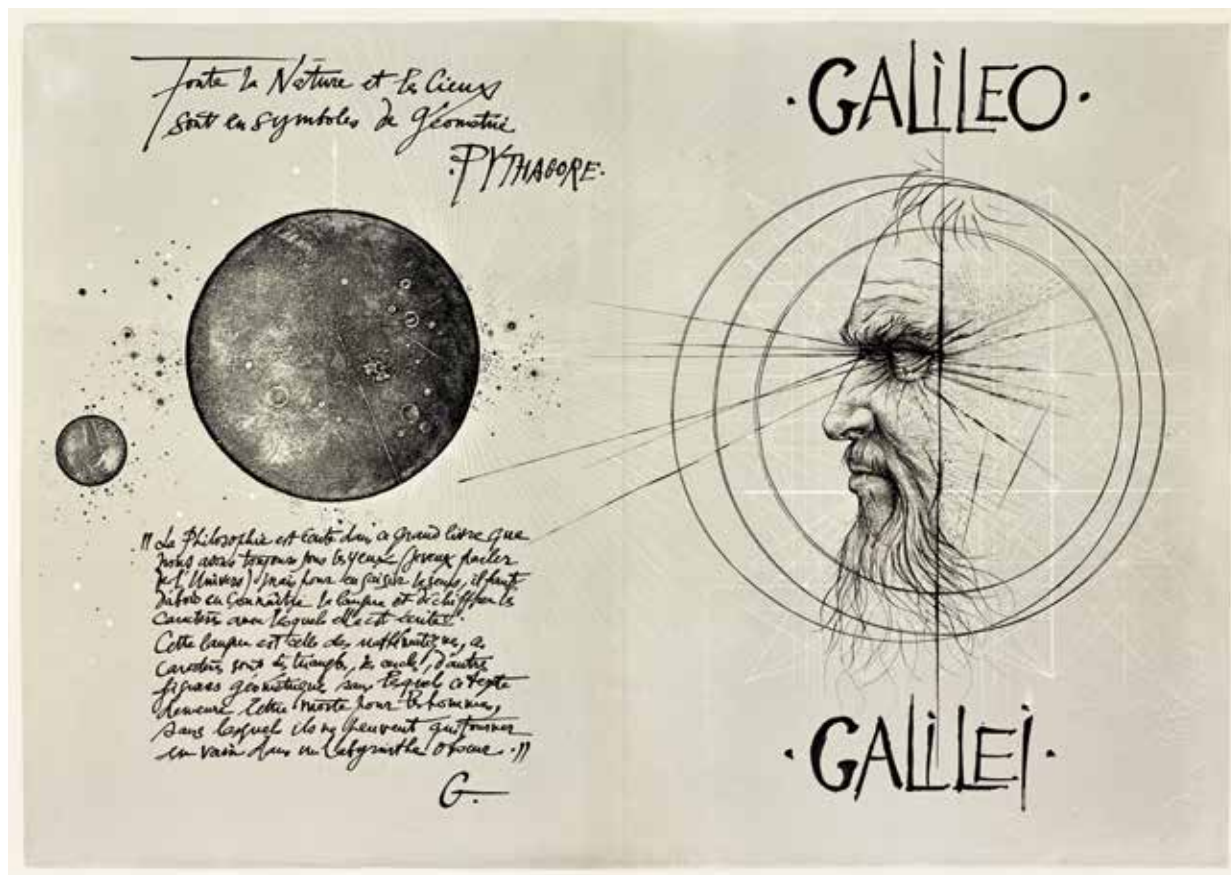 Toute la Nature et les Cieux
sont en symboles de Géométrie
·PYTHAGORE·
"La Philosophie est écrite dans ce grand livre que
nous avons toujours sous les yeux (je veux parler
de l'Univers) mais pour en saisir le sens, il faut
d'abord en connaître la langue et déchiffrer les
caractères avec lesquels elle est écrite.
Cette langue est celle des mathématiques, ces
caractères sont des triangles, des cercles, d'autres
figures géométriques sans lesquels ce texte
demeure lettre morte pour les hommes,
sans lesquels ils ne peuvent que tourner
en vain dans un labyrinthe obscur."
G.
·GALiLEO·
·GALiLEi·